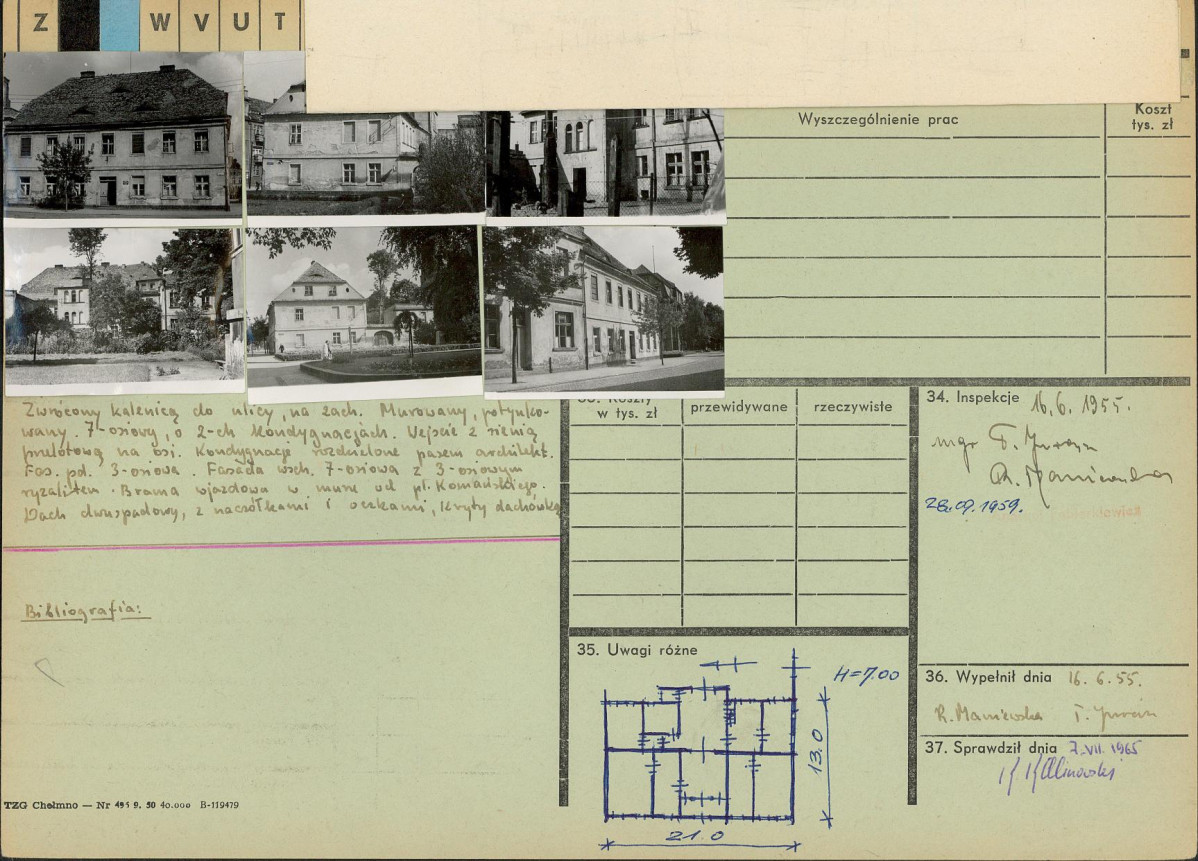 Z W V U T
Wyszczególnienie prac
Koszt
tys. zł
Zwrócony kalenicą do ulicy, na zach. Murowany, potynko-
wany. 7-osiowy, o 2-ch kondygnacjach. Wejście z sienią
przelotową na osi. Kondygnacje rozdzielone pasem architekt.
Fas. pd. 3-osiowa. Fasada wsch. 7-osiowa z 3-osiowym
ryzalitem. Brama wjazdowa w murze od pl. Komańskiego.
Dach dwuspadowy, z naczółkami i oczkami, kryty dachówką
Bibliografia:
TZG Chełmno — Nr 495 9. 50 40.000 B-119479
Koszty
w tys. zł
przewidywane
rzeczywiste
34. Inspekcje 16.6.1955.
mgr T.
R. Maniewska
28.09.1959.
35. Uwagi różne
H=7.00
13.0
21.0
36. Wypełnił dnia 16.6.55.
R. Maniewska T.
37. Sprawdził dnia 7.VII.1965
K Kalinowski